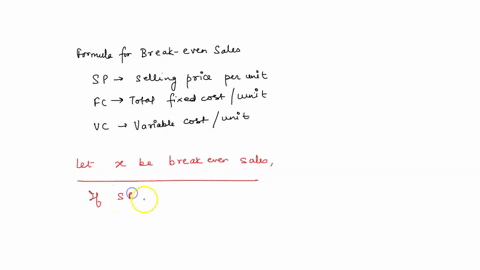 Formula for Break-even Sales
SP → Selling price per unit
FC → Total fixed cost/unit
VC → Variable cost/unit
Let x be breakeven sales,
If SP.